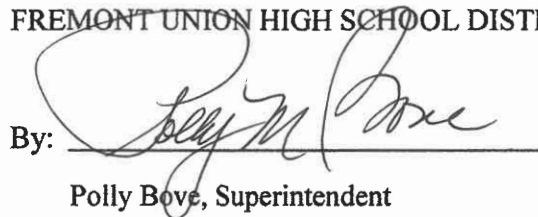 FREMONT UNION HIGH SCHOOL DIST
By: Polly M Bove
Polly Bove, Superintendent